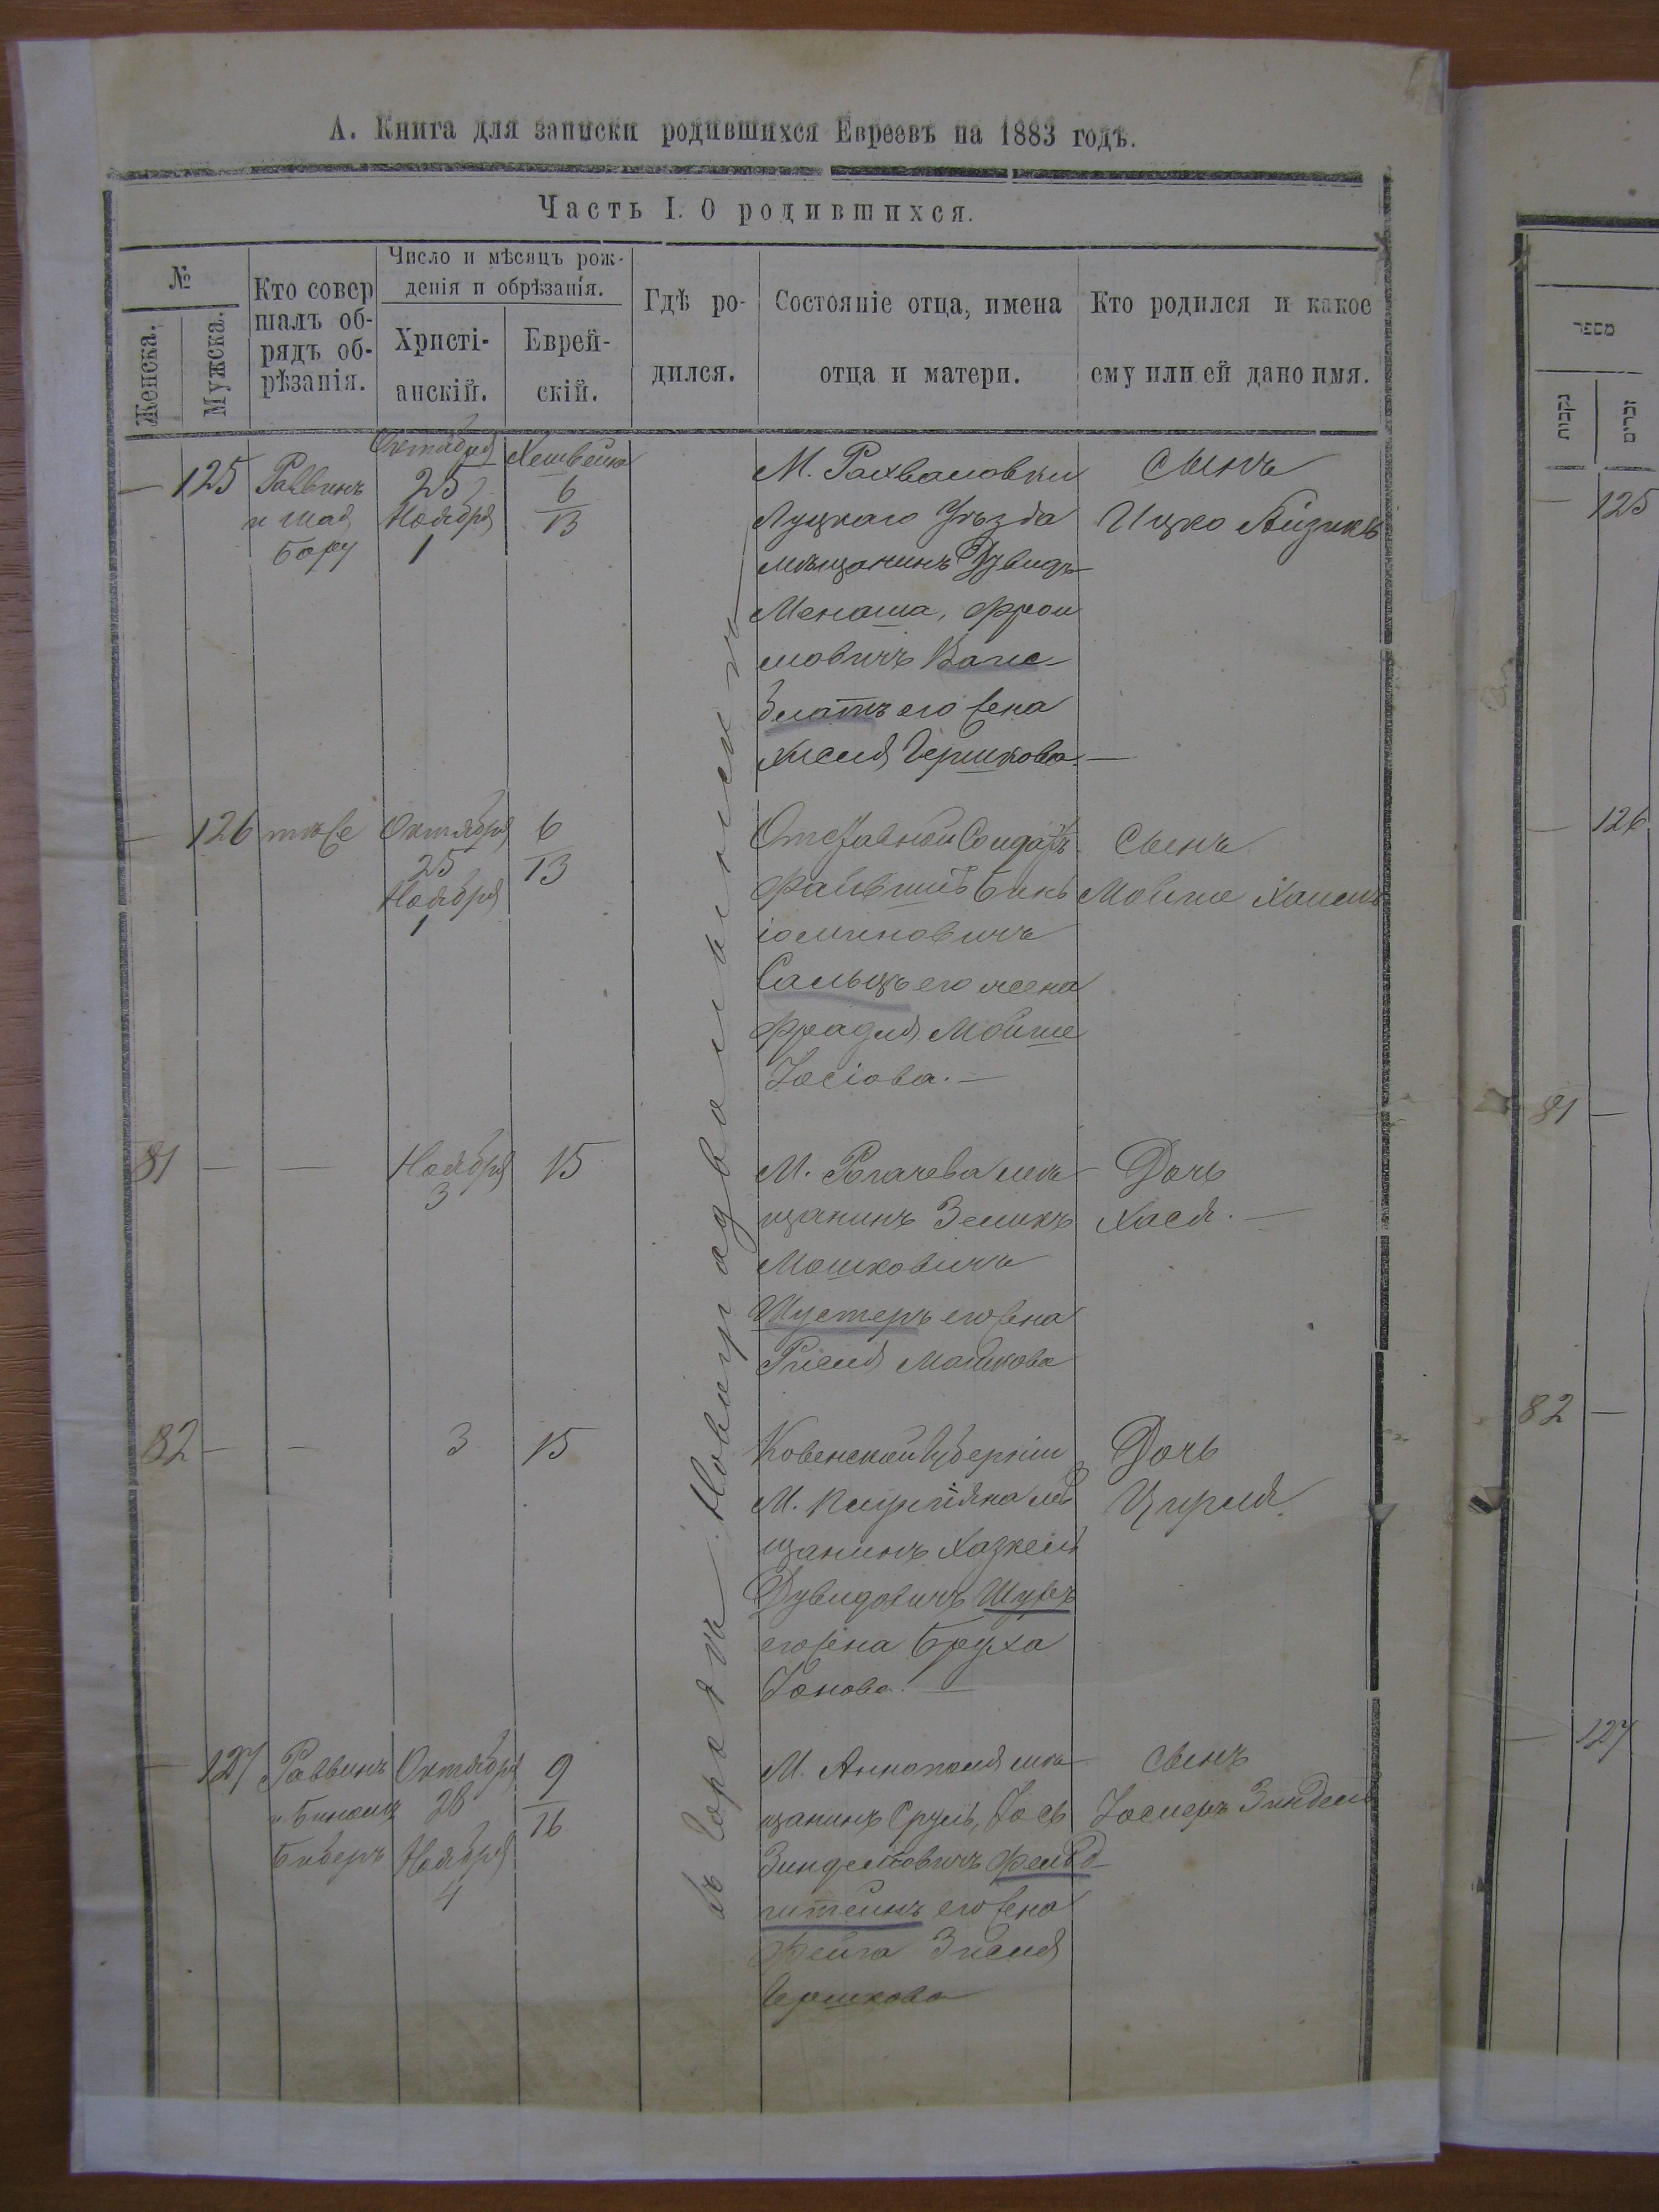 А. Книга для записки родившихся Евреевъ на 1883 годъ.
Часть I. О родившихся.
№
Женска.
Мужска.
Кто совер
шалъ об-
рядъ об-
рѣзанія.
Число и мѣсяцъ рож-
денія и обрѣзанія.
Христі-
анскій.
Еврей-
скій.
Гдѣ ро-
дился.
Состояніе отца, имена
отца и матери.
Кто родился и какое
ему или ей дано имя.
въ городѣ Новоградволынскѣ
— 125
Раввинъ
и Мой
Бору
Октября
25
Ноября
1
Хешвейна
6
13
М. Рахваловки
Луцкаго Уѣзда
мѣщанинъ Дувидъ
Менаша, Фрои
мовичъ Вайс
блатъ его жена
Хисея Гершкова —
сынъ
Ицко Айзикъ
— 126
тѣже
Октября
25
Ноября
1
6
13
Отставной Солдатъ
Файвишъ Бинь
іоминовичъ
Сальцъ его жена
Фрадля Мойше
Іосіова. —
Сынъ
Мойше Хаимъ
81 — —
Ноября
3
15
М. Рогачева мѣ
щанинъ Зеликъ
Мошковичъ
Шустеръ его жена
Рисея Мошкова
Дочь
Хася. —
82 — —
3
15
Ковенской Губерніи
М. мѣ
щанинъ Хазкель
Дувидовичъ
его жена Бруха
Іонова. —
Дочь
Цирля
— 127
Раввинъ
и Биноми
Биберъ
Октября
28
Ноября
4
9
16
М. Аннополя мѣ
щанинъ Сруль, Іось
Зинделіовичъ Фельд
штейнъ его жена
Фейга Зисея
Гершкова
сынъ
Зиндель
מספר
נקבות
זכרים
— 125
— 126
81 —
82 —
— 127